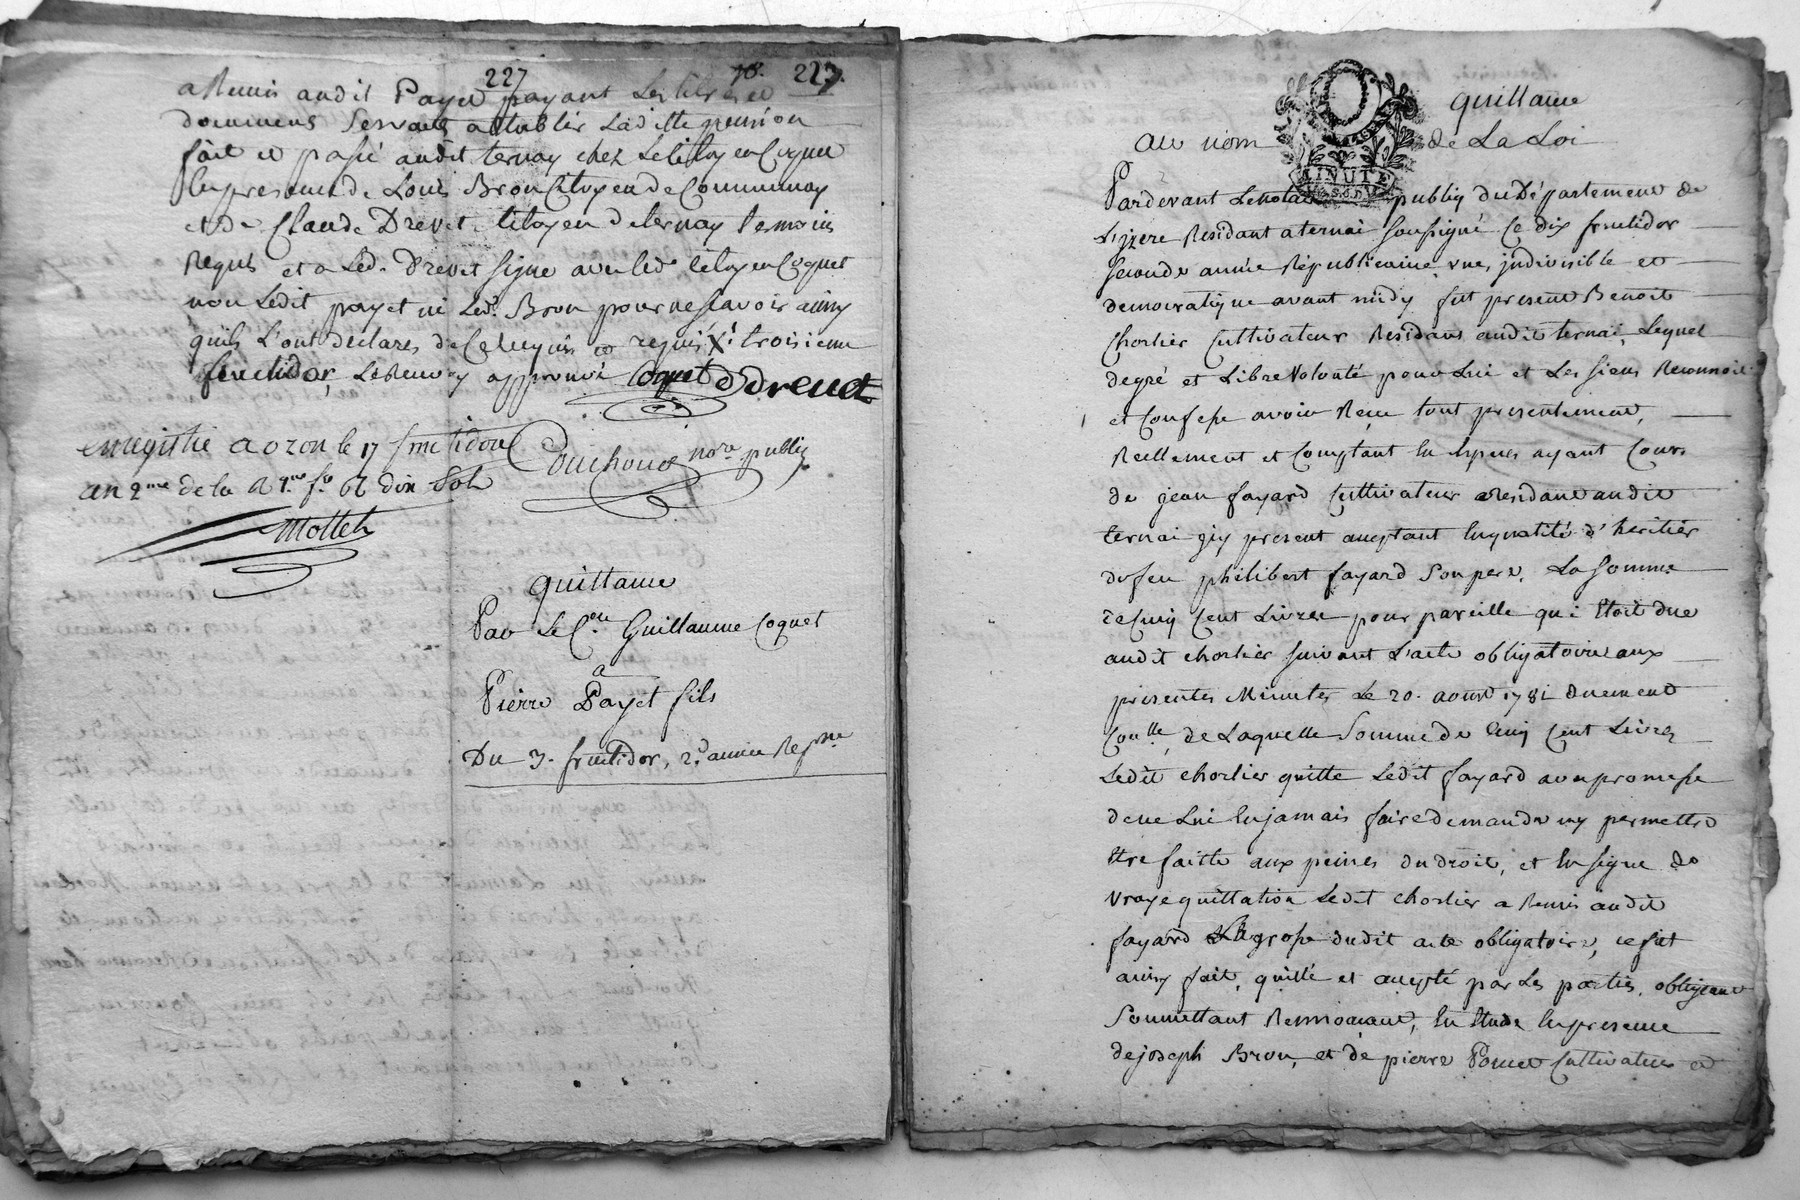 227 227.
a Remis audit Payet payant Les titres et
documens Servants a Etablir Laditte pension
fait et passé audit ternay chez Le Citoyen Coquet
En presence de Louis Bron Citoyen de Communay
et de Claude Drevet Citoyen de ternay temoins
Requis et a Led. Drevet Signe avec led Citoyen Coquet
non Ledit payet ni Led. Bron pour ne Savoir ainsy
quils L'ont déclarés de Ce Enquis et requis X troisieme
fructidor, Le Renvoy approuvé Coquet D Drevet
enregistre a ozon le 17 fructidor
an 2me de la R f.o 62 dix Sols
nore public
Mottet
quittance
Par Le C.en Guillaume Coquet
a
Pierre Payet fils
Du 3. fructidor, 2.e année Repne
quittance
au nom de La Loi
MINUTE
Pardevant Le notaire public du Département de
L'izere Residant a ternai Soussigné Ce dix fructidor
Seconde année Républicaine, une, indivisible et
democratique avant midy fut present Benoit
Chorlier Cultivateur Residant audit ternai, Lequel
de gré et Libre Volonté pour Lui et Les Siens Reconnoit
et Confesse avoir Recu tout presentement,
Reellement et Comptant En Especes ayant Cours
de jean fayard Cultivateur Residant audit
ternai icy present acceptant En qualité d'heritier
de feu philibert fayard Son pere, La Somme
de Cinq Cent Livres pour pareille qui Etoit due
audit chorlier Suivant L'acte obligatoire aux
presentes Minutes Le 20. aoust 1781 duement
Con.lle, de Laquelle Somme de Cinq Cent Livres
Ledit chorlier quitte Ledit fayard avec promesse
de ne Lui En jamais faire demande ny permettre
Etre faitte aux peines du droit, et En Signe de
vraye quittation Ledit Chorlier a Remis audit
fayard La grosse dudit acte obligatoire, ce fut
ainsy fait, quitté et accepté par Les parties, obligeant
Soumettant Renoncant, En Etude En presence
de joseph Bron, et de pierre Poncet Cultivateurs et